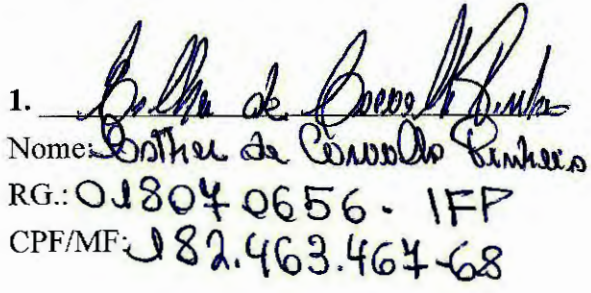 1. Esther de Carvalho Pinheiro
Nome: Esther de Carvalho Pinheiro
RG.: 018070656 - IFP
CPF/MF: 182.463.467-68